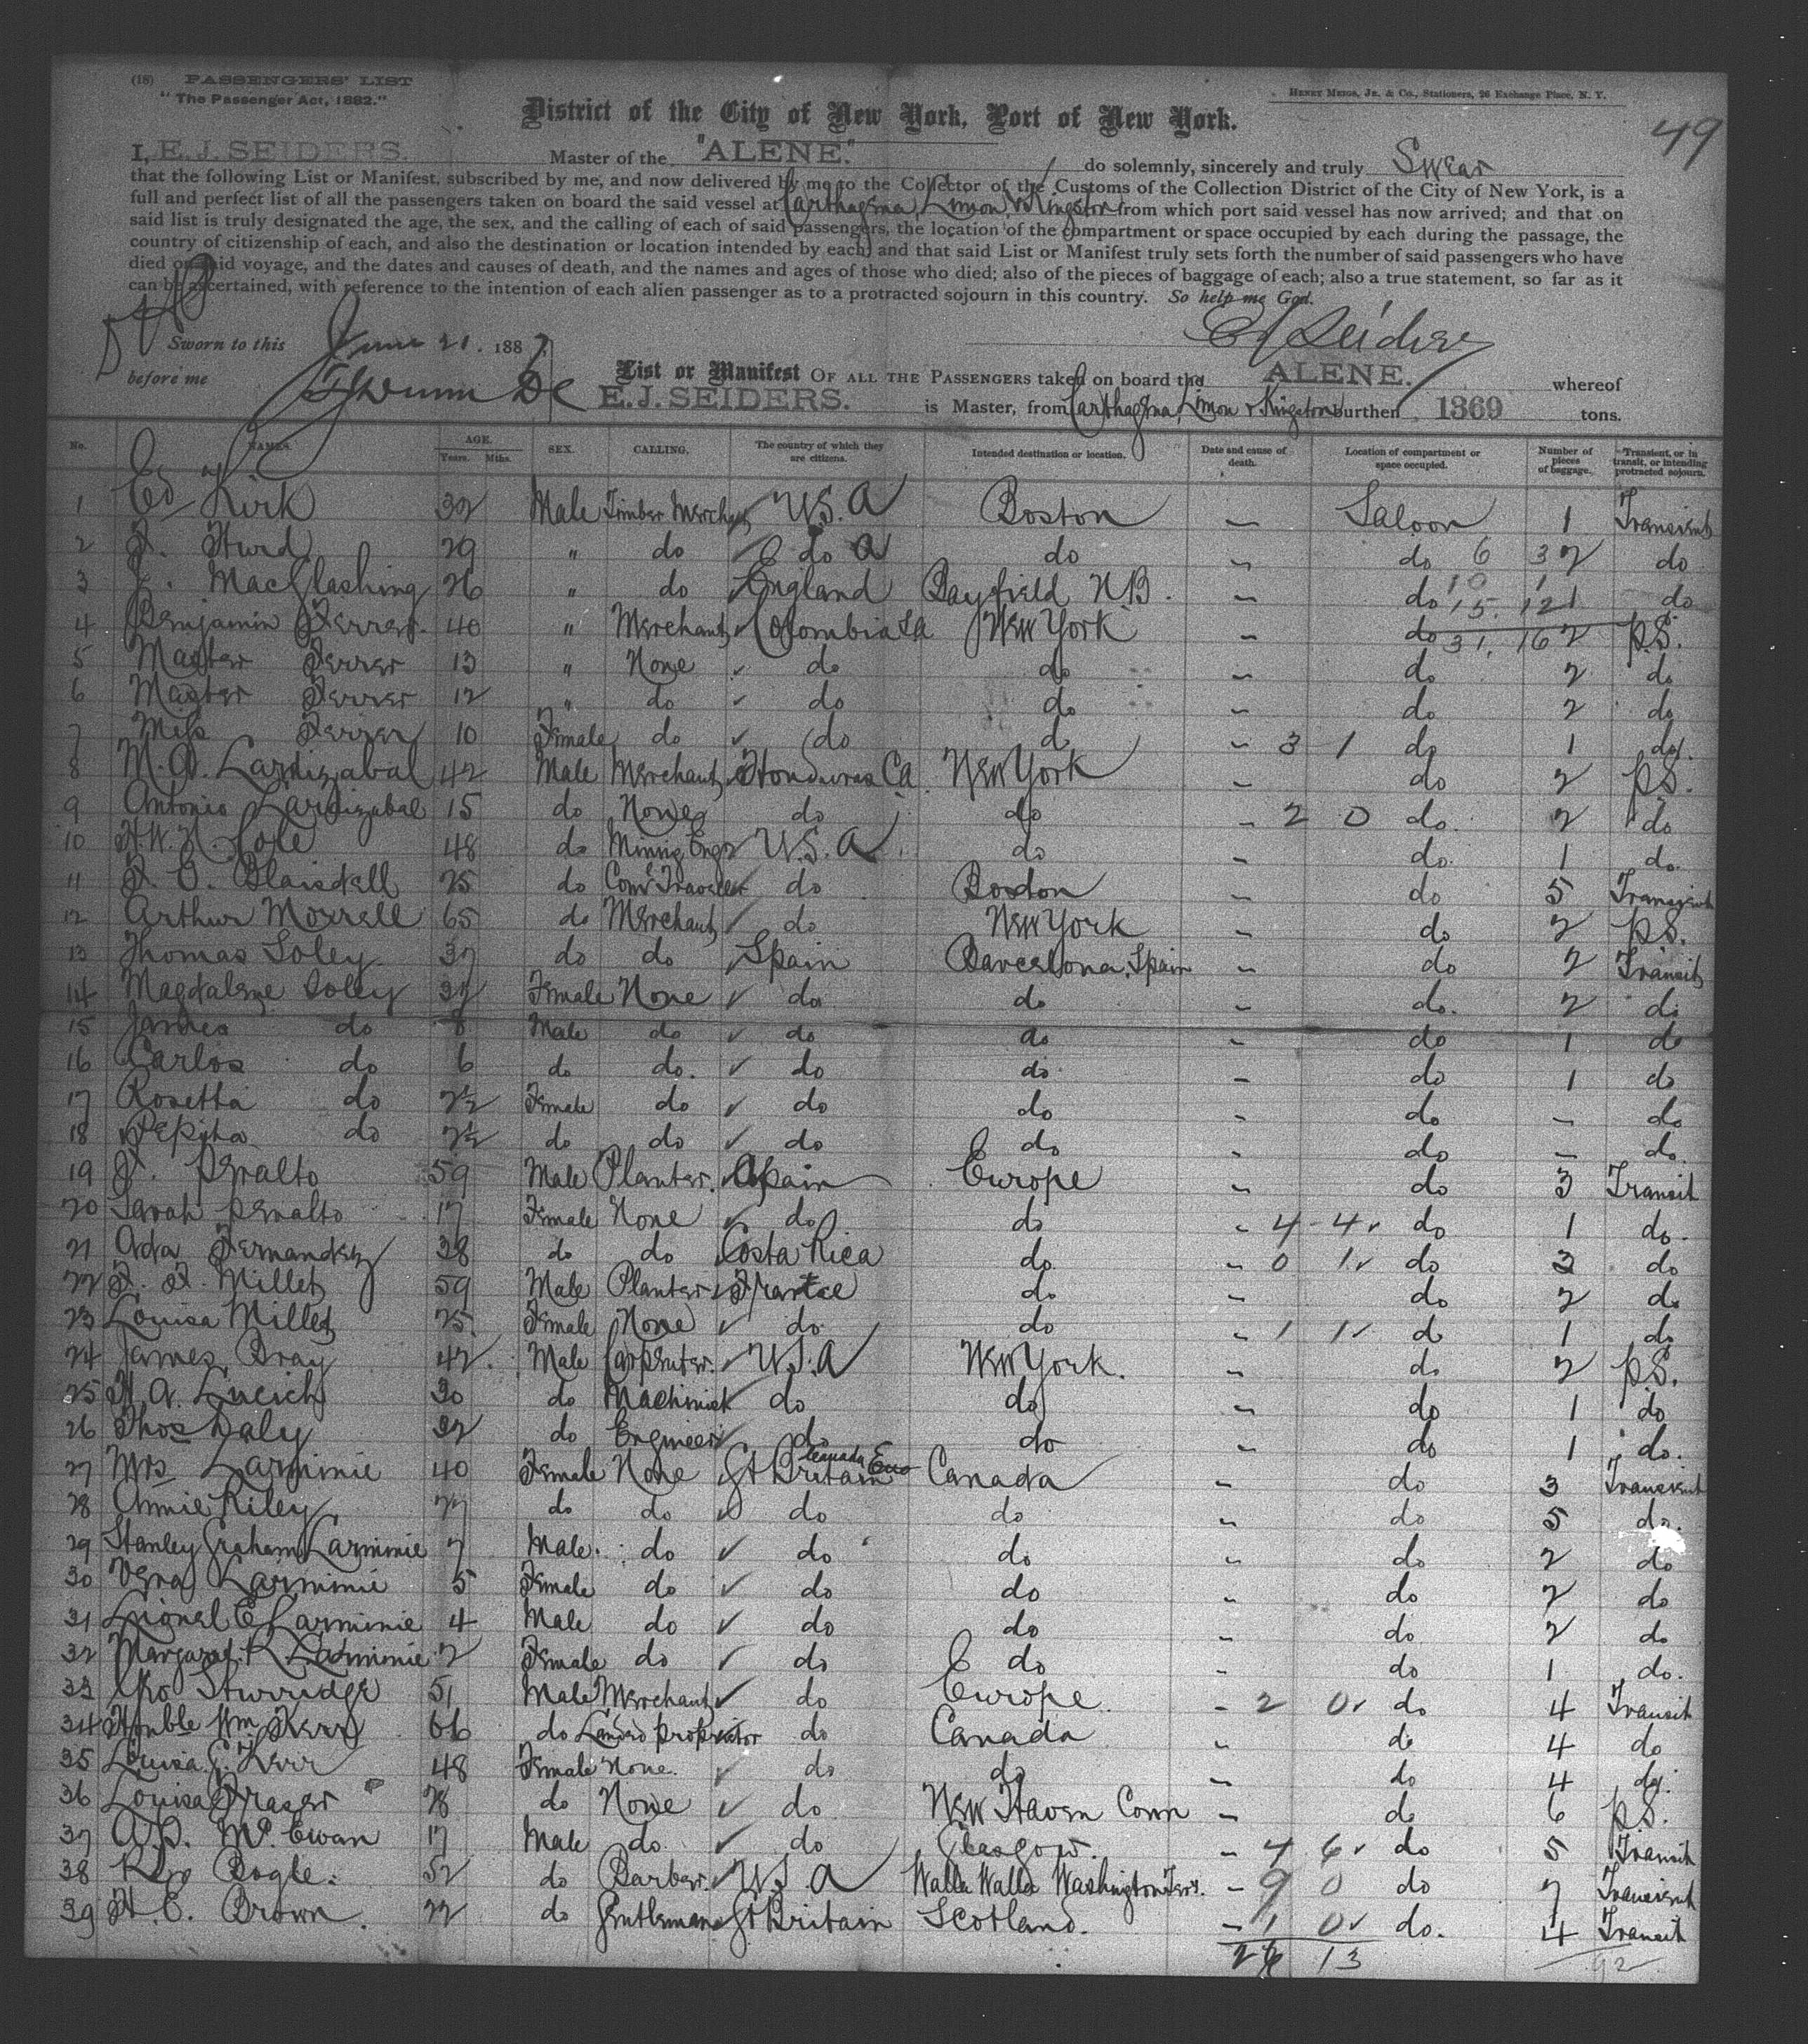 (18) PASSENGERS' LIST
"The Passenger Act, 1882."
HENRY MEIGS, JR. & CO., Stationers, 26 Exchange Place, N. Y.
District of the City of New York, Port of New York.
49
I, E. J. SEIDERS. Master of the "ALENE." do solemnly, sincerely and truly Swear
that the following List or Manifest, subscribed by me, and now delivered by me to the Collector of the Customs of the Collection District of the City of New York, is a
full and perfect list of all the passengers taken on board the said vessel at Carthagena, Limon, & Kingston from which port said vessel has now arrived; and that on
said list is truly designated the age, the sex, and the calling of each of said passengers, the location of the compartment or space occupied by each during the passage, the
country of citizenship of each, and also the destination or location intended by each; and that said List or Manifest truly sets forth the number of said passengers who have
died on said voyage, and the dates and causes of death, and the names and ages of those who died; also of the pieces of baggage of each; also a true statement, so far as it
can be ascertained, with reference to the intention of each alien passenger as to a protracted sojourn in this country. So help me God.
Sworn to this June 21. 1887
E J Seiders
before me
List or Manifest OF ALL THE PASSENGERS taken on board the ALENE. whereof
E. J. SEIDERS. is Master, from Carthagena, Limon & Kingston burthen 1369 tons.
No. NAMES. AGE. Years. Mths. SEX. CALLING. The country of which they are citizens. Intended destination or location. Date and cause of death. Location of compartment or space occupied. Number of pieces of baggage. Transient, or in transit, or intending protracted sojourn.
1 Ed Kirk 32 Male Timber Merchant U.S.A Boston – Saloon 1 Transient
2 F. Hurd 29 " do do do – do 2 do
3 J. MacGlashing 26 " do England Bayfield N.B. – do 1 do
4 Benjamin Ferrer 40 " Merchant Colombia SA New York – do 2 P.S.
5 Master Ferrer 13 " None do do do 2 do
6 Master Ferrer 12 " do do do – do 2 do
7 Miss Ferrer 10 Female do do do – 3 1 do 1 do
8 M. A. Lardizabal 42 Male Merchant Honduras CA New York – do 2 P.S.
9 Antonio Lardizabal 15 do None do do – 2 0 do 2 do
10 H. W. N. Cole 48 do Mining Engr U.S.A do – do 1 do
11 F. O. Blaisdell 25 do Coml Traveller do Boston – do 5 Transient
12 Arthur Morrell 65 do Merchant do New York – do 2 P.S.
13 Thomas Soley 37 do do Spain Barcelona, Spain – do 2 Transit
14 Magdalene Soley 32 Female None do do – do 2 do
15 James do 8 Male do do do – do 1 do
16 Carlos do 6 do do do do – do 1 do
17 Rosetta do 2½ Female do do do – do – do
18 Pepita do 2½ do do do do – do – do
19 J. Peralto 59 Male Planter Spain Europe – do 3 Transit
20 Sarah Peralto 17 Female None do do – 4 4 do 1 do
21 Ada Fernandez 38 do do Costa Rica do – 0 1 do 3 do
22 F. F. Millet 59 Male Planter France do – do 2 do
23 Louisa Millet 25 Female None do do – 1 1 do 1 do
24 James Bray 42 Male Carpenter U.S.A New York – do 2 P.S.
25 H. A. Lucich 30 do Machinist do do – do 1 do
26 Thos Daly 32 do Engineer do do – do 1 do
27 Mrs Larminie 40 Female None Gt Britain Canada – do 3 Transient
28 Annie Riley 27 do do do do – do 5 do
29 Stanley Graham Larminie 7 Male do do do – do 2 do
30 Vera Larminie 5 Female do do do – do 2 do
31 Lionel E Larminie 4 Male do do do – do 2 do
32 Margaret R Larminie 2 Female do do do – do 1 do
33 Geo Sturridge 51 Male Merchant do Europe – 2 0 do 4 Transit
34 Honble Wm Kerr 66 do Landed proprietor do Canada – do 4 do
35 Louisa G. Kerr 48 Female None do do – do 4 do
36 Louisa Fraser 28 do None do New Haven Conn – do 6 P.S.
37 A. P. McEwan 17 Male do do Glasgow – 4 6 do 5 Transit
38 Rev Bogle 52 do Barber U.S.A Walla Walla Washington Terr. – 9 0 do 7 Transient
39 H. E. Brown 22 do Gentleman Gt Britain Scotland – 1 0 do 4 Transit
26 13 92